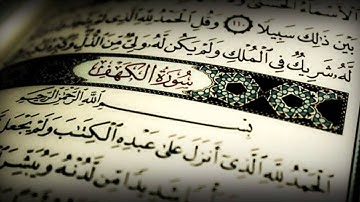 الْأَسْمَاءُ الْحُسْنَىٰ
بَيْنَ ذَٰلِكَ سَبِيلًا ١١٠ وَقُلِ الْحَمْدُ لِلَّهِ
لَهُ شَرِيكٌ فِي الْمُلْكِ وَلَمْ يَكُن لَّهُ وَلِيٌّ مِّنَ الذُّلِّ وَكَبِّرْهُ
سُورَةُ الْكَهْفِ
بِسْمِ اللَّهِ الرَّحْمَٰنِ الرَّحِيمِ
الْحَمْدُ لِلَّهِ الَّذِي أَنزَلَ عَلَىٰ عَبْدِهِ الْكِتَابَ وَلَمْ يَجْعَل
شَدِيدًا مِّن لَّدُنْهُ وَيُبَشِّرَ